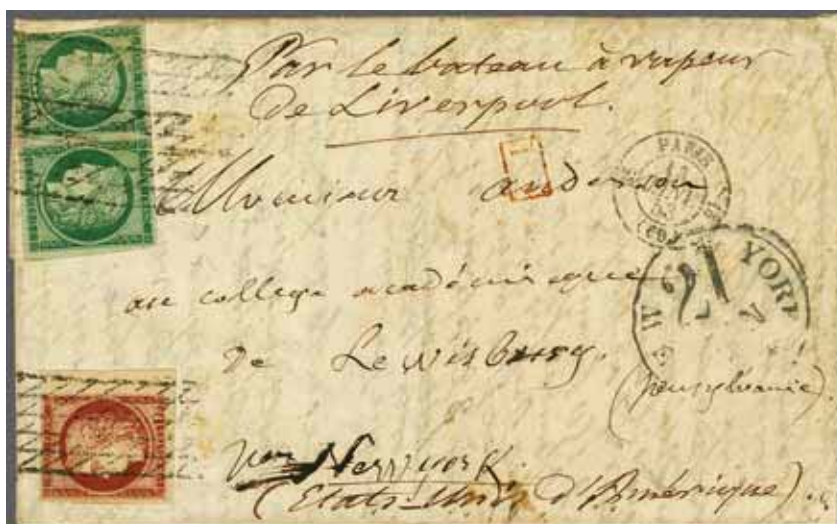 Par le bateau à vapeur
de Liverpool.
PARIS
(60)
Monsieur anderson
YORK
21
au college académique
de Lewisburg.
(pensylvanie)
New york
(Etats-Unis d'Amérique).